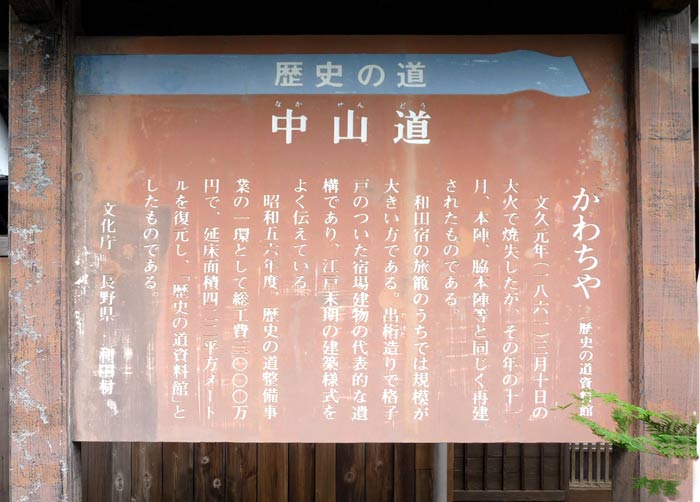 歴史の道
なか せん どう
中山道
かわちや 歴史の道資料館
文久元年(一八六一)三月十日の
大火で焼失したが、その年の十一
月、本陣、脇本陣等と同じく再建
されたものである。
和田宿の旅籠のうちでは規模が
大きい方である。出桁造りで格子
戸のついた宿場建物の代表的な遺
構であり、江戸末期の建築様式を
よく伝えている。
昭和五六年度、歴史の道整備事
業の一環として総工費三〇〇〇万
円で、延床面積四二二平方メート
ルを復元し、「歴史の道資料館」と
したものである。
文化庁 長野県 和田村